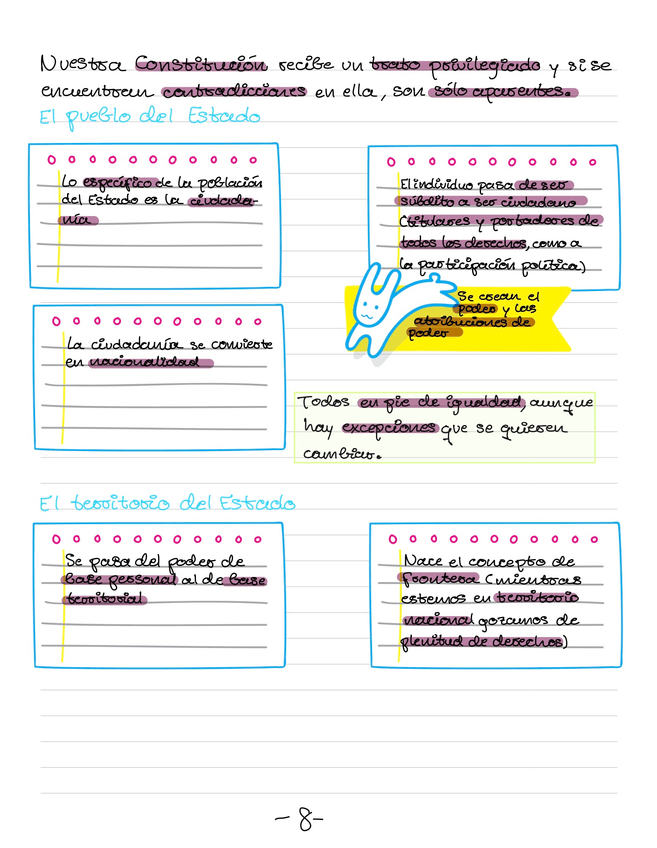 Nuestra Constitución recibe un trato privilegiado y si se
encuentran contradicciones en ella, son sólo aparentes.
El pueblo del Estado
Lo específico de la población
del Estado es la ciudada-
nía
El individuo pasa de ser
súbdito a ser ciudadano
(titulares y portadores de
todos los derechos, como a
la participación política)
Se crean el
poder y las
atribuciones de
poder
La ciudadanía se convierte
en nacionalidad
Todos en pie de igualdad, aunque
hay excepciones que se quieren
cambiar.
El territorio del Estado
Se pasa del poder de
base personal al de base
territorial
Nace el concepto de
frontera (mientras
estemos en territorio
nacional gozamos de
plenitud de derechos)
-8-